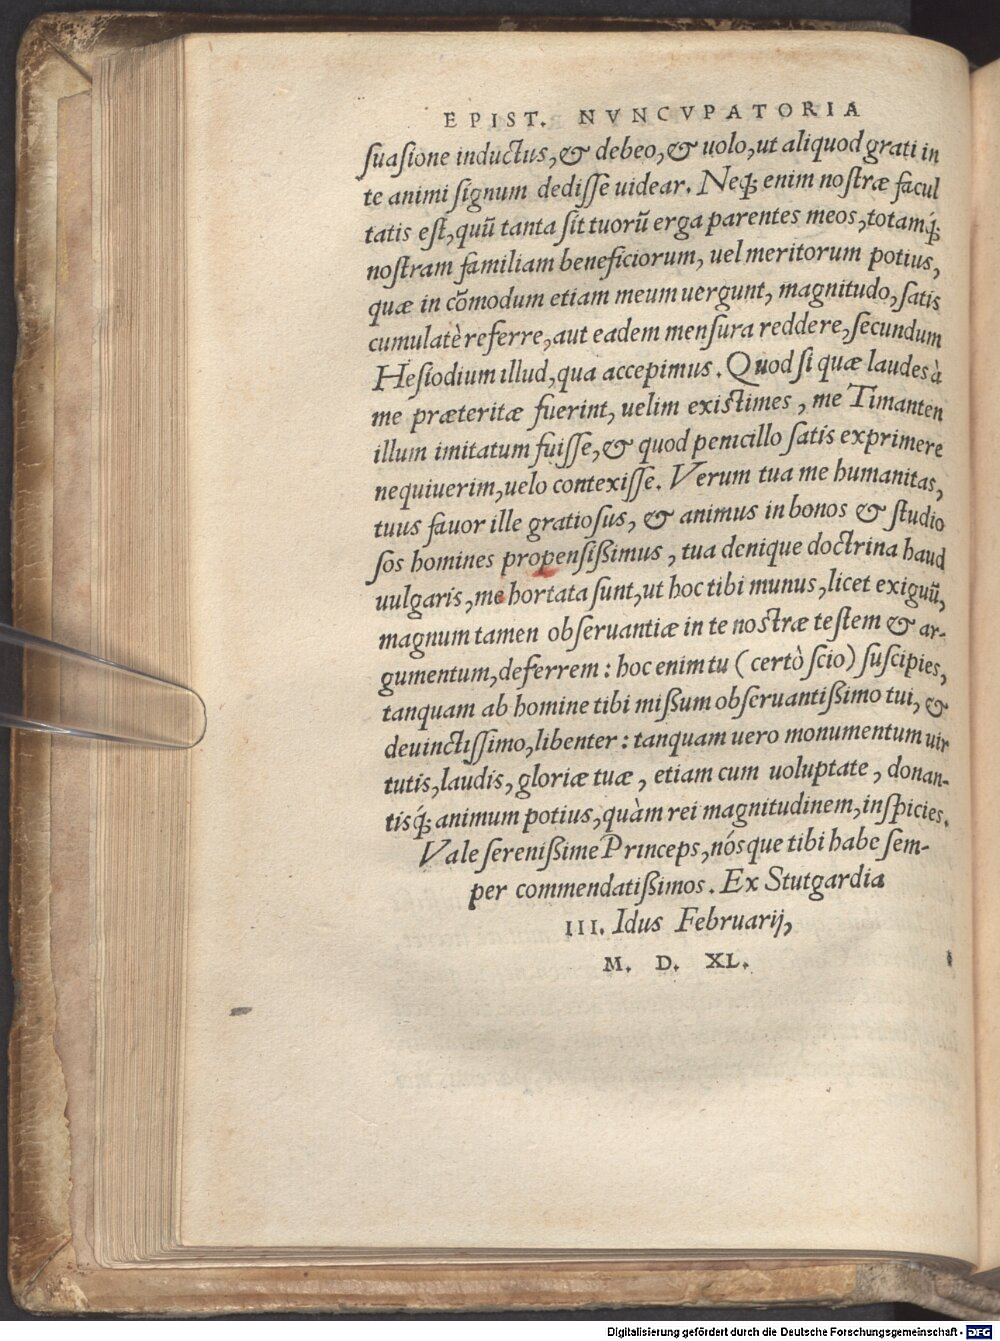 EPIST. NVNCVPATORIA
suasione inductus, & debeo, & uolo, ut aliquod grati in
te animi signum dedisse uidear. Neq; enim nostræ facul
tatis est, quũ tanta sit tuorũ erga parentes meos, totamq́;
nostram familiam beneficiorum, uel meritorum potius,
quæ in cõmodum etiam meum uergunt, magnitudo, satis
cumulatè referre, aut eadem mensura reddere, secundum
Hesiodium illud, qua accepimus. Quod si quæ laudes à
me præteritæ fuerint, uelim existimes, me Timanten
illum imitatum fuisse, & quod penicillo satis exprimere
nequiuerim, uelo contexisse. Verum tua me humanitas,
tuus fauor ille gratiosus, & animus in bonos & studio
sos homines propensißimus, tua denique doctrina haud
uulgaris, me hortata sunt, ut hoc tibi munus, licet exiguũ,
magnum tamen obseruantiæ in te nostræ testem & ar-
gumentum, deferrem: hoc enim tu (certò scio) suscipies,
tanquam ab homine tibi missum obseruantißimo tui, &
deuinctissimo, libenter: tanquam uero monumentum uir
tutis, laudis, gloriæ tuæ, etiam cum uoluptate, donan-
tisq́; animum potius, quàm rei magnitudinem, inspicies.
Vale serenißime Princeps, nósque tibi habe sem-
per commendatißimos. Ex Stutgardia
III. Idus Februarij,
M. D. XL.
Digitalisierung gefördert durch die Deutsche Forschungsgemeinschaft - DFG